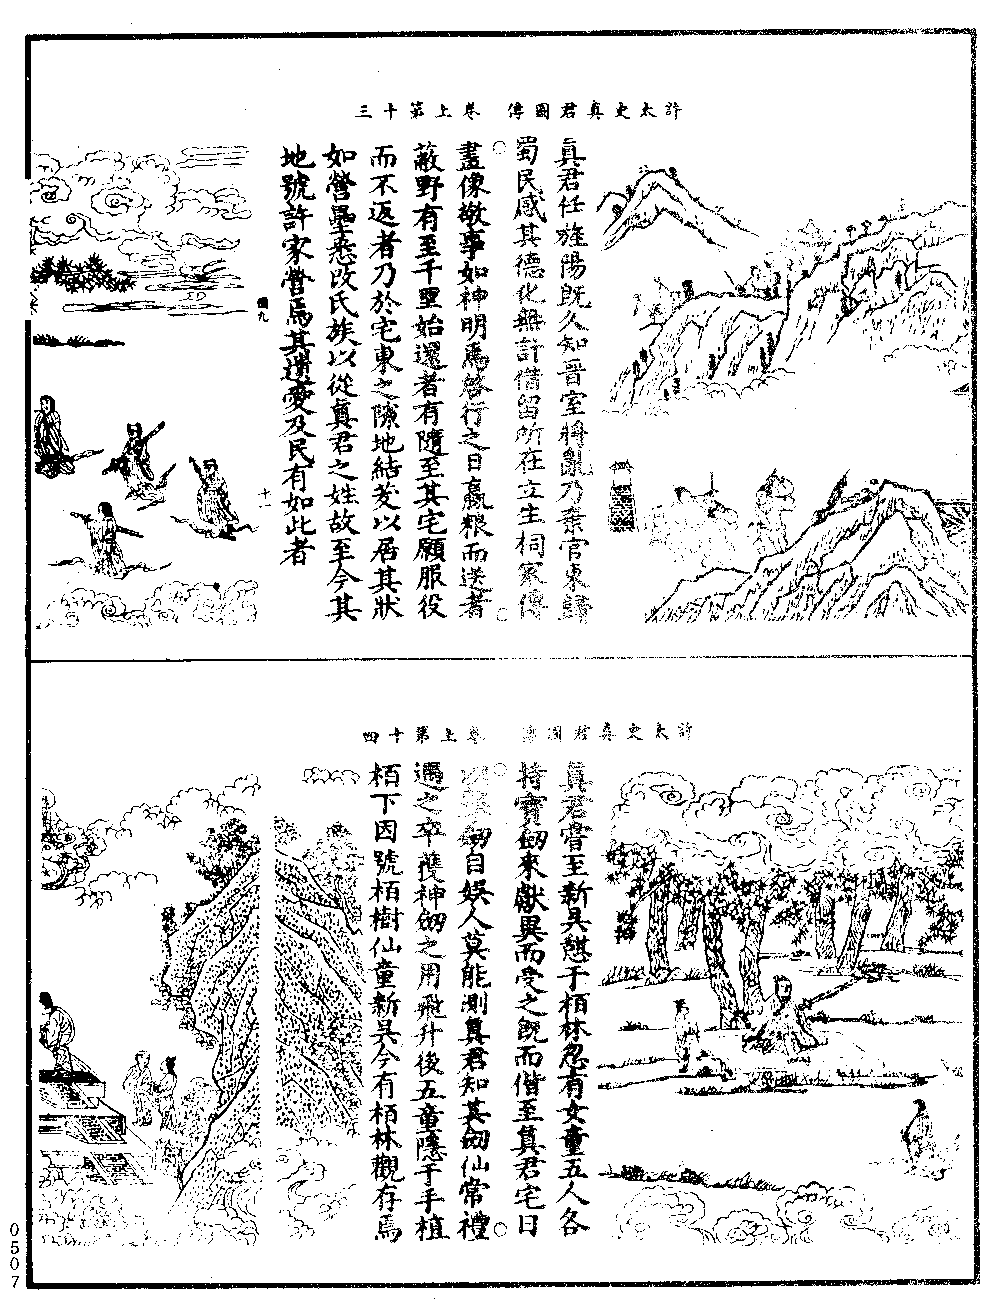 許太史真君圖傳　卷上第十三
真君任旌陽既久知晉室將亂乃棄官東歸
蜀民感其德化無計借留所在立生祠家傳
畫像敬事如神明焉啓行之日贏粮而送者
蔽野有至千里始還者有隨至其宅願服役
而不返者乃於宅東之隙地結茇以居其狀
如營壘悉改氏族以從真君之姓故至今其
地號許家營焉其遺愛及民有如此者
十一
許太史真君圖傳　卷上第十四
真君嘗至新吳憇于栢林忽有女童五人各
持寶劔來獻異而受之既而偕至真君宅日
劔自娛人莫能測真君知其劔仙常禮
遇之卒獲神劔之用飛升後五童隱于手植
栢下因號栢樹仙童新吳今有栢林觀存焉
0507